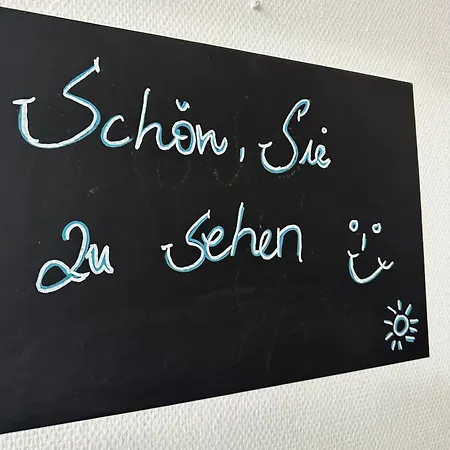 Schön, Sie
zu sehen